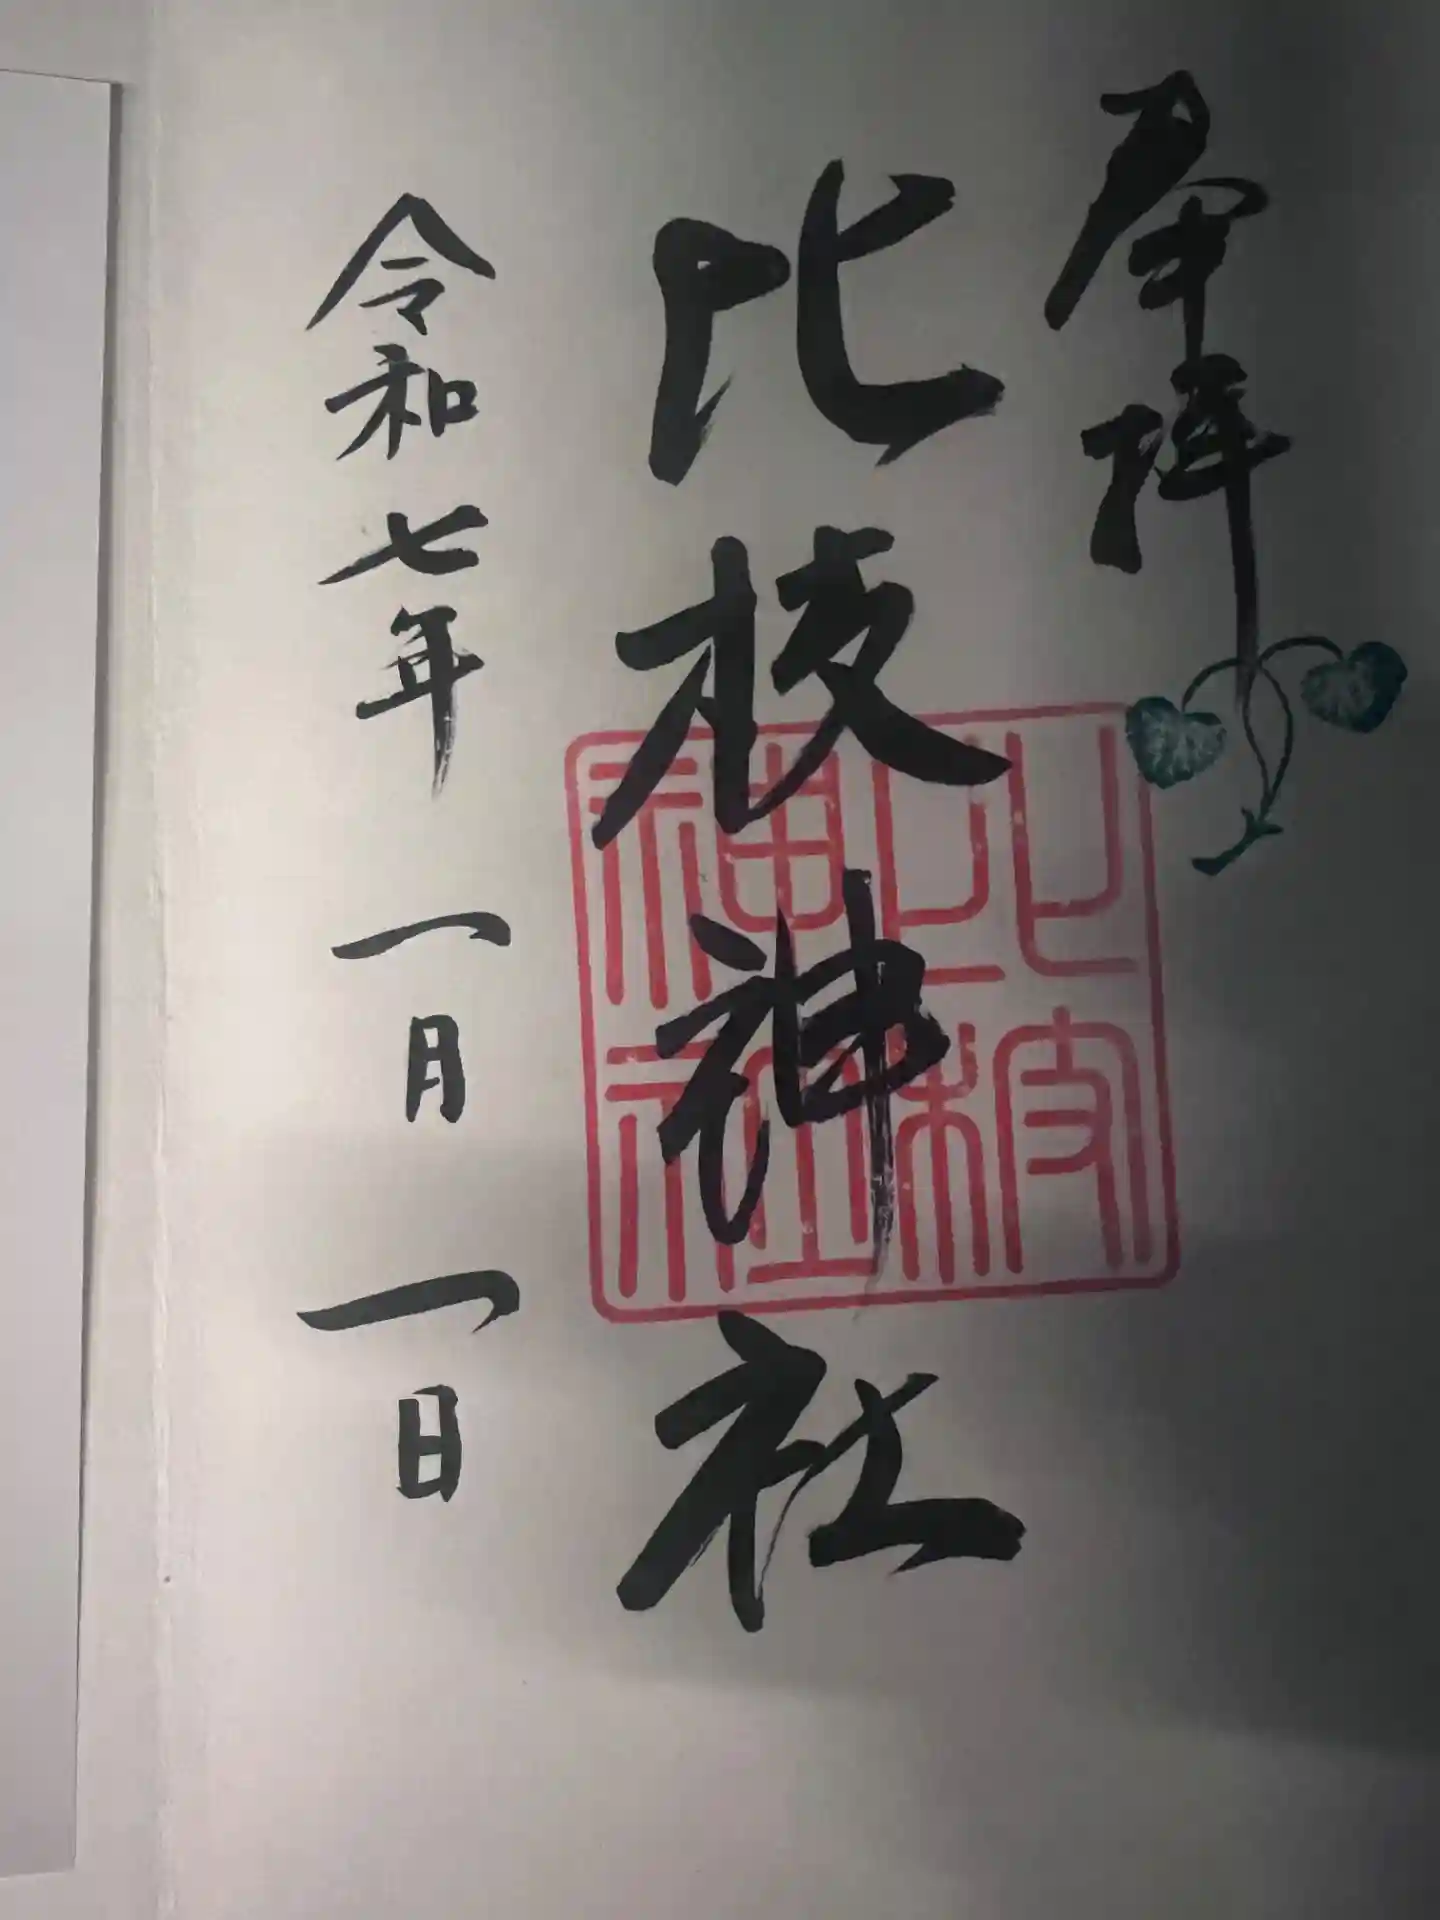 奉拝
比枝神社
比枝
神社
令和七年 一月 一日